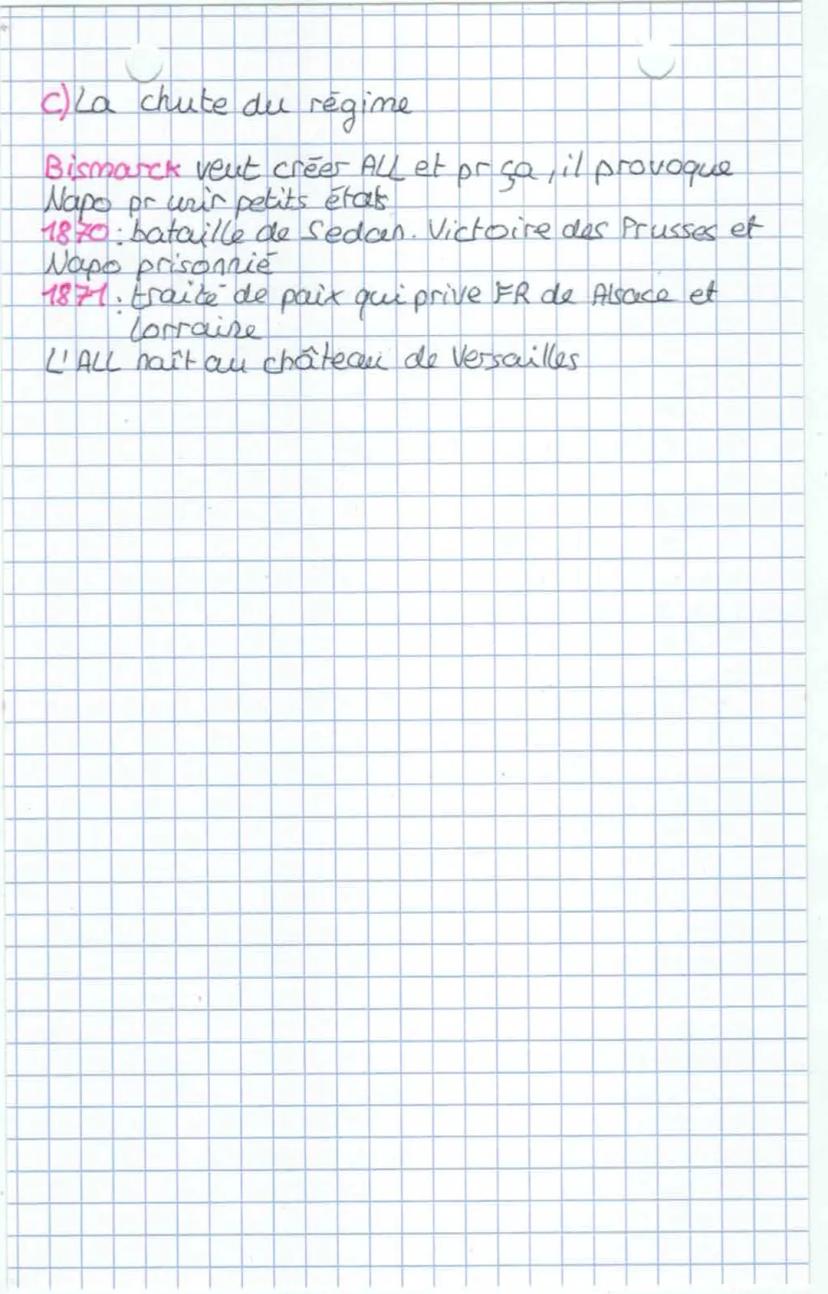 c) La chute du régime
Bismarck veut créer ALL et pr ça, il provoque
Napo pr unir petits états
1870 : bataille de Sedan. Victoire des Prusses et
Napo prisonnié
1871 : traité de paix qui prive FR de Alsace et
Lorraine
L'ALL naît au château de Versailles